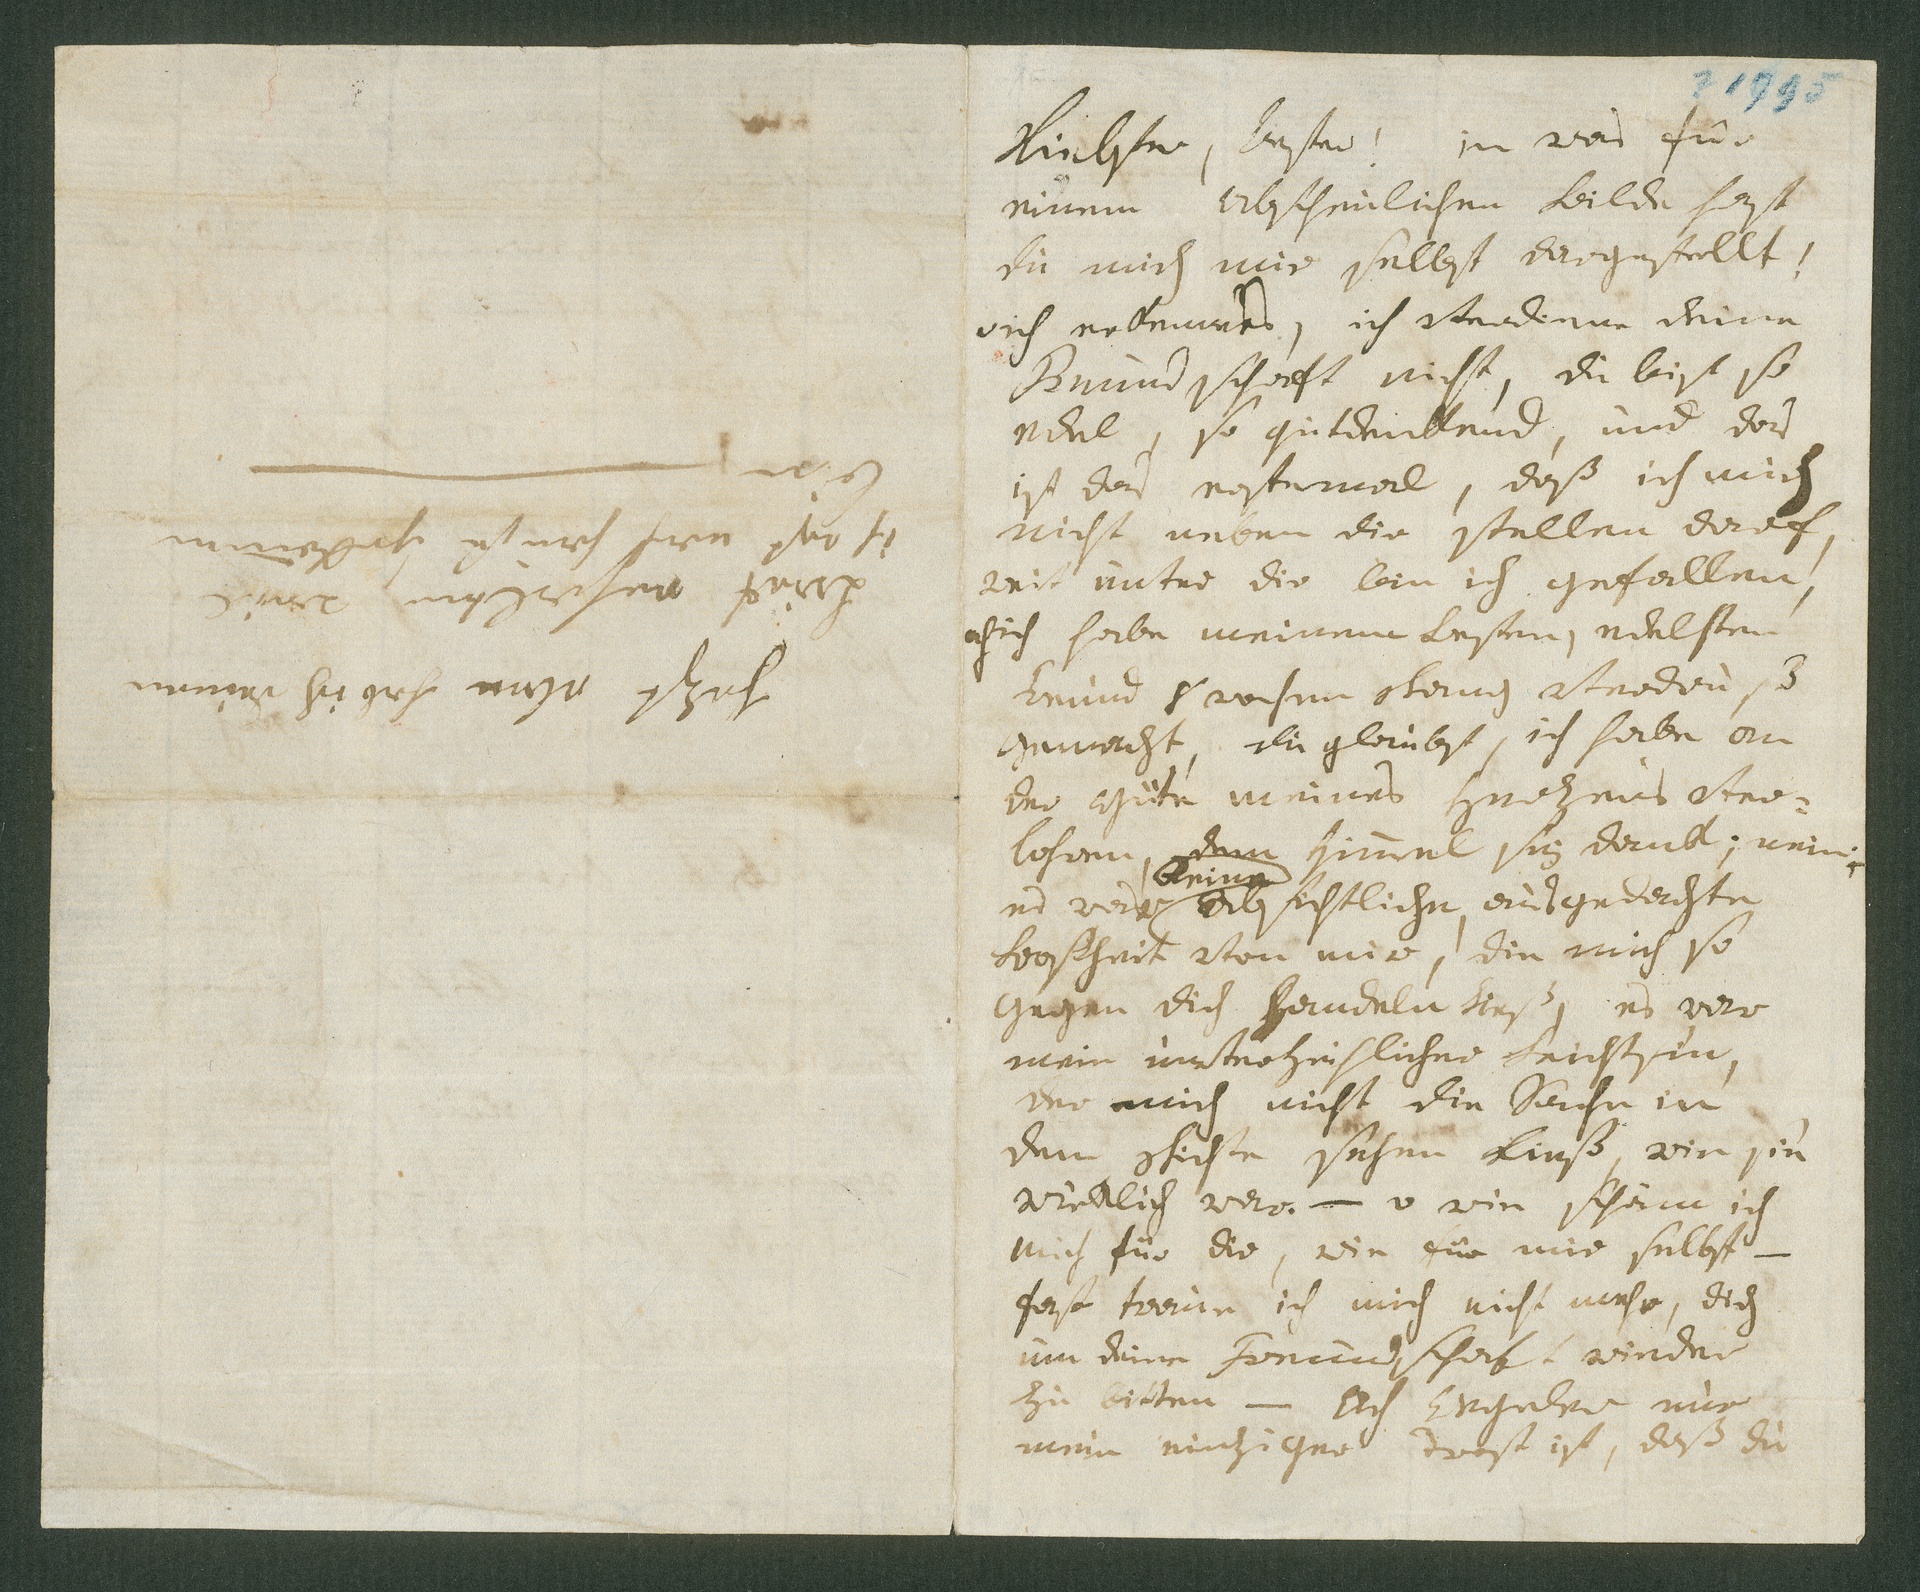 ? 1795
Liebster, bester! in was für
einem abscheulichen Bilde hast
du mich mir selbst dargestellt!
o ich erkenne es, ich verdiene deine
Freundschaft nicht, du bist so
edel, so gutdenkend, und das
ist das erstemal, daß ich mich
nicht neben dir stellen darf,
weit unter dir bin ich gefallen,
ach ich habe meinem besten, edelsten
Freund 8 wochen lang verdruß
gemacht, du glaubst, ich habe an
der Güte meines Herzens ver=
lohren, dem Himmel sey dank; nein;
es war keine absichtliche, ausgedachte
Boßheit von mir, die mich so
gegen dich handeln ließ, es war
mein unverzeihlicher Leichtsinn,
der mich nicht die Sache in
dem Lichte sehen ließ, wie sie
wirklich war. — o wie schäm ich
mich für dir, wie für mir selbst —
fast traue ich mich nicht mehr, dich
um deine Freundschaft wieder
zu bitten — Ach Wegeler nur
mein einziger Trost ist, daß du
jetzt eben hab ich deinen
Brief erhalten, weil
ich erst nach Hause gekommen
bin. —